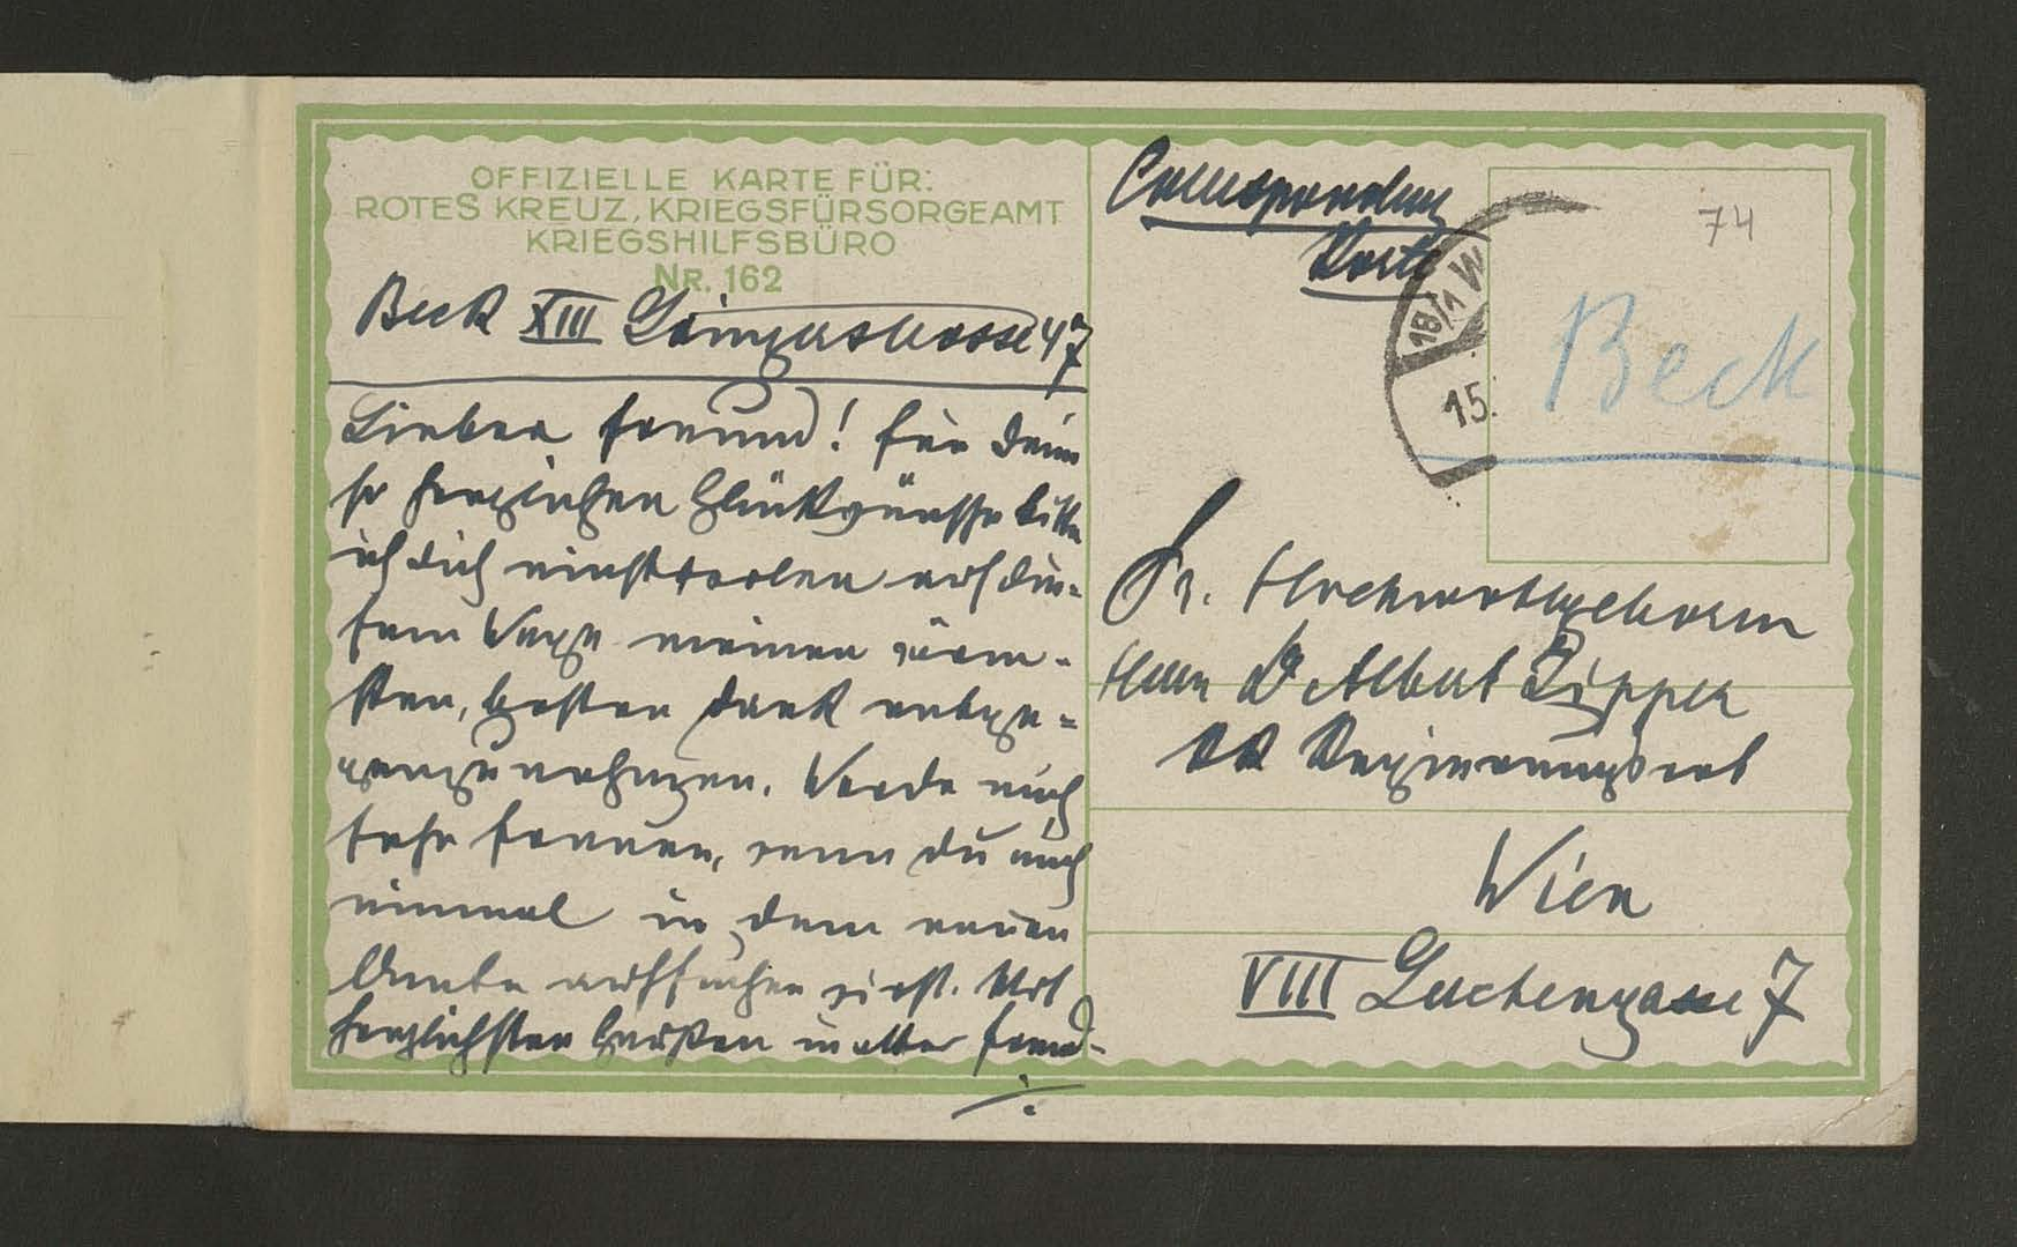 OFFIZIELLE KARTE FÜR:
ROTES KREUZ, KRIEGSFÜRSORGEAMT
KRIEGSHILFSBÜRO
NR. 162
Beck XIII Lainzerstrasse 47
Lieber Freund! Für Deine
so herzlichen Glückwünsche bitte
ich Dich einstweilen auf die-
sem Wege meinen wärm-
sten, besten Dank entge-
genzunehmen. Werde mich
sehr freuen, wenn Du mich
einmal in dem neuen
aufsuchen wirst. Mit
herzlichsten Grüßen in alter Freund-
./.
Correspondenz
Karte
18/1 W
15.
74
Beck
Sr. Hochwohlgeboren
Herrn Dr Albert Zipper
KK Regierungsrat
Wien
VIII Lerchengasse 7